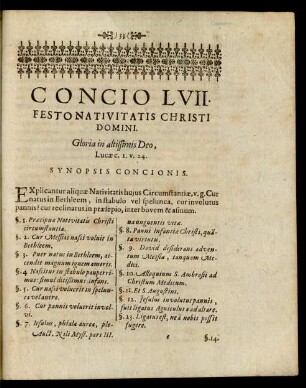 33
CONCIO LVII.
FESTO NATIVITATIS CHRISTI
DOMINI.
Gloria in altissimis Deo,
Lucæ c. 2. v. 24.
SYNOPSIS CONCIONIS.
EXplicantur aliquæ Nativitatis hujus Circumstantiæ, v. g. Cur
natus in Bethleem, in stabulo vel spelunca, cur involutus
pannis: cur reclinatus in præsepio, inter bovem & asinum.
§. 1. Præcipua Nativitatis Christi
circumstantia.
§. 2. Cur Messias nasci voluit in
Bethleem.
§. 3. Puer natus in Bethleem, ac-
cendit magnum ignem amoris.
§. 4. Nascitur in stabulo pauperri-
mus simul ditissimus infans.
§. 5. Cur nasci voluerit in spelun-
ca vel antro.
§. 6. Cur pannis voluerit invol-
vi.
§. 7. Jesulus, phiala aurea, ple-
Auct. Nili Myst. pars III.
na unguentis vita.
§. 8. Panni Infantiæ Christi, quã-
ta virtutis.
§. 9. David desiderans adven-
tum Messiæ, tanquam Me-
dici.
§. 10. Alloquium S. Ambrosii ad
Christum Medicum.
§. 11. Et S. Augustini.
§. 12. Jesulus involutus pannis,
fuit ligatus Agniculus ad altare.
§. 13. Ligatus est, ne à nobis possit
fugere.
e
§. 14.